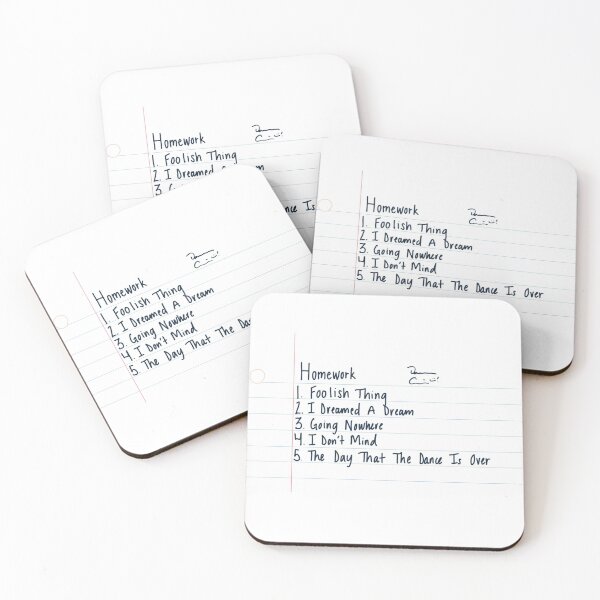 Homework
1. Foolish Thing
2. I Dreamed A Dream
3. Go
nce Is
Homework
1. Foolish Thing
2. I Dreamed A Dream
3. Going Nowhere
4. I Don't Mind
5. The Day That The Dance Is Over
Homework
1. Foolish Thing
2. I Dreamed A Dream
3. Going Nowhere
4. I Don't Mind
5. The Day That The Da
Homework
1. Foolish Thing
2. I Dreamed A Dream
3. Going Nowhere
4. I Don't Mind
5. The Day That The Dance Is Over